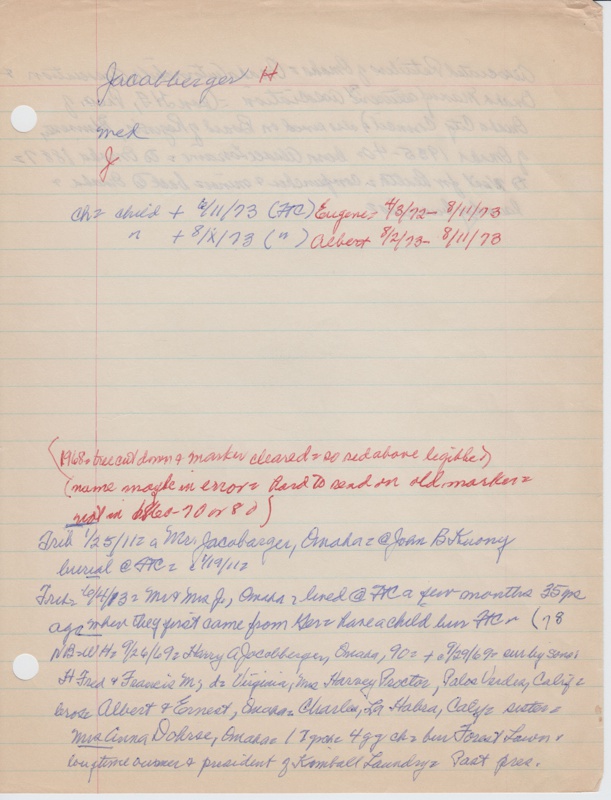 Jacobberger H
med
J
ch = child + 8/11/73 (FtC) Eugene = 4/3/72 - 8/11/73
" + 8/ /73 (") Albert 8/2/73 - 8/11/73
(1968 = tree cut down & marker cleared = so red above legible)
(name maybe in error = hard to read on old marker =
not in 1860-70 or 80)
Trib 1/25/11 = a Mrs Jacobarger, Omaha = @ John B Kuony
burial @ FtC = 1/19/11 =
Trib = 6/4/03 = Mr & Mrs J, Omaha = lived @ FtC a few months 35 yrs
ago when they first came from Ger = have a child bur FtC (78
NB-WH = 9/26/69 = Harry A Jacobberger, Omaha, 90 = + 9/29/69 = sur by sons:
H Fred & Francis M; d = Virginia, Mrs Harvey Proctor, Palos Verdes, Calif =
bros = Albert & Ernest, Omaha = Charles, La Habra, Calif = sister =
Mrs Anna Dohrse, Omaha = 17 gch = 4 gg ch = bur Forest Lawn =
longtime owner & president of Kimball Laundry = Past pres.